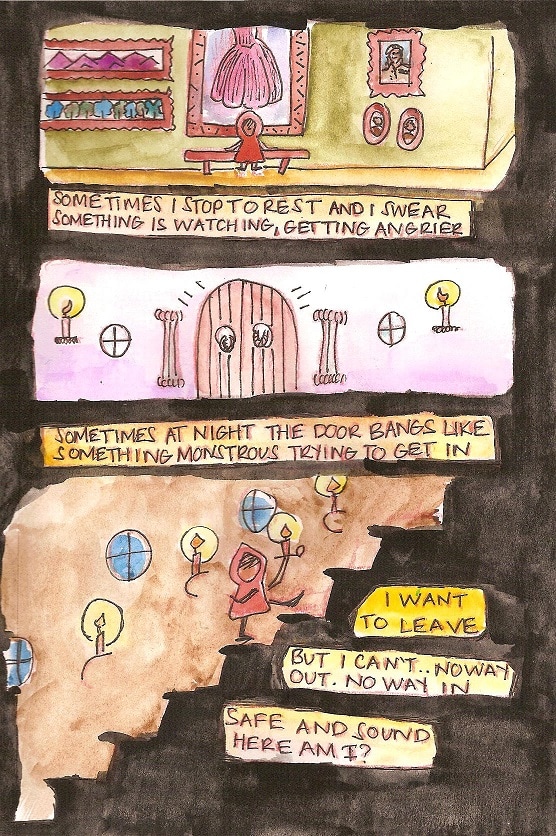 SOMETIMES I STOP TO REST AND I SWEAR
SOMETHING IS WATCHING, GETTING ANGRIER
SOMETIMES AT NIGHT THE DOOR BANGS LIKE
SOMETHING MONSTROUS TRYING TO GET IN
I WANT
TO LEAVE
BUT I CAN'T.. NO WAY
OUT. NO WAY IN
SAFE AND SOUND
HERE AM I?